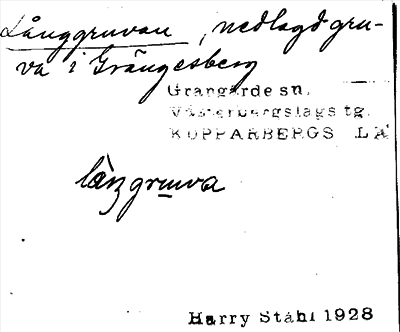 Långgruvan, nedlagd gru-
va i Grängesberg
Grangärde sn.
Västerbergslags tg.
KOPPARBERGS LÄ
långgruva
Harry Ståhl 1928